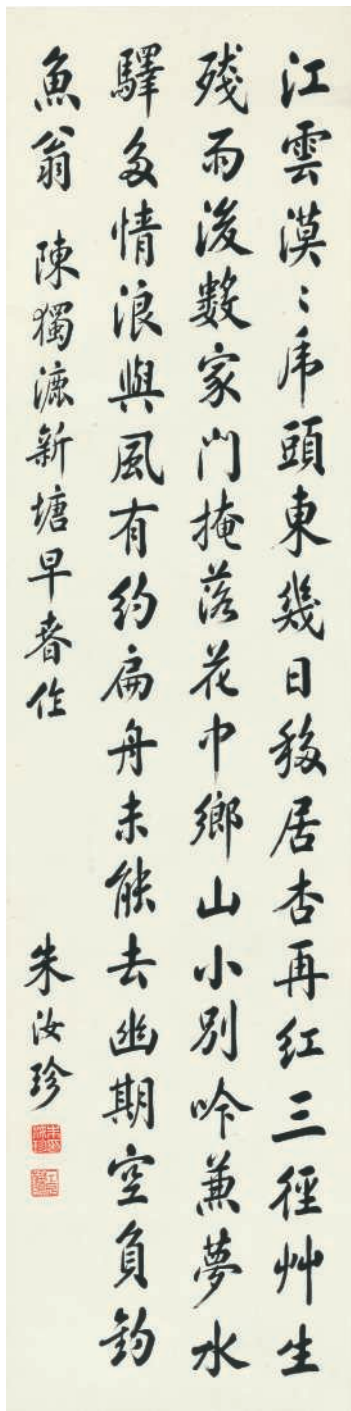 江雲漠〻帍頭東幾日移居杏再紅三徑艸生
殘雨後數家門掩落花中鄉山小別吟兼夢水
驛多情浪與風有約扁舟未能去幽期空負釣
魚翁 陳獨漉新塘早春作
朱汝珍